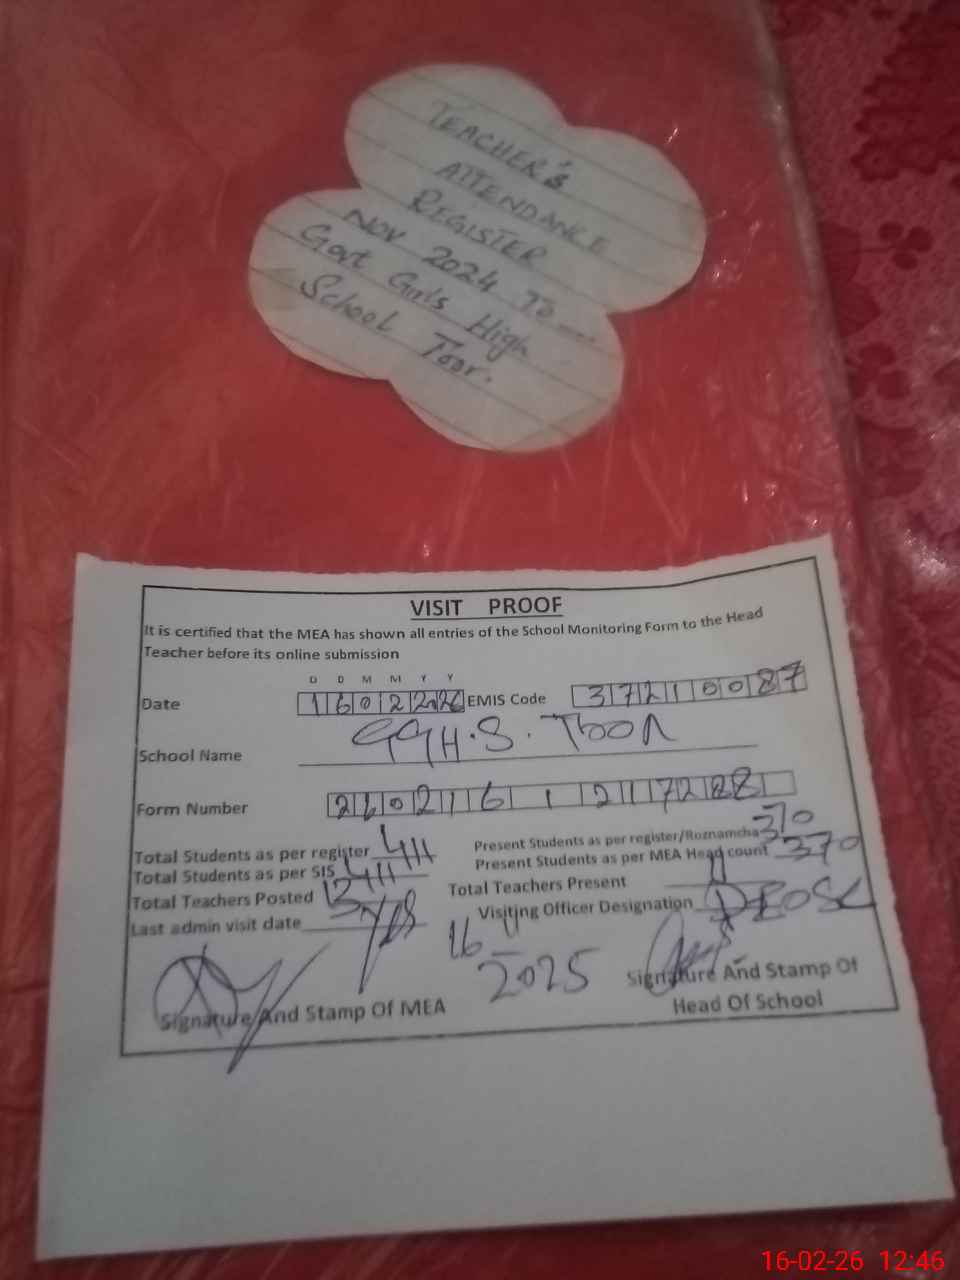 TEACHER'S
ATTENDANCE
REGISTER
NOV 2024 To
Govt Girls High
School Toor.
VISIT PROOF
It is certified that the MEA has shown all entries of the School Monitoring Form to the Head
Teacher before its online submission
D D M M Y Y
Date 16022026 EMIS Code 37210087
School Name GGH.S. Toor
Form Number 2602161217288
Total Students as per register 411 Present Students as per register/Roznamcha 370
Total Students as per SIS 411 Present Students as per MEA Head count 370
Total Teachers Posted 13 Total Teachers Present 11
Last admin visit date yes Visiting Officer Designation
16 11
2025
Signature And Stamp Of MEA Signature And Stamp Of
Head Of School
16-02-26 12:46